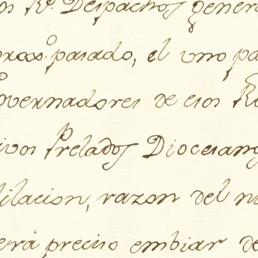 os R.s Despachos genera
pasado, el uno pa
overnadores de esos R
ivos Prelados Diocesan
ilacion, razon del n
erá preciso embiar de